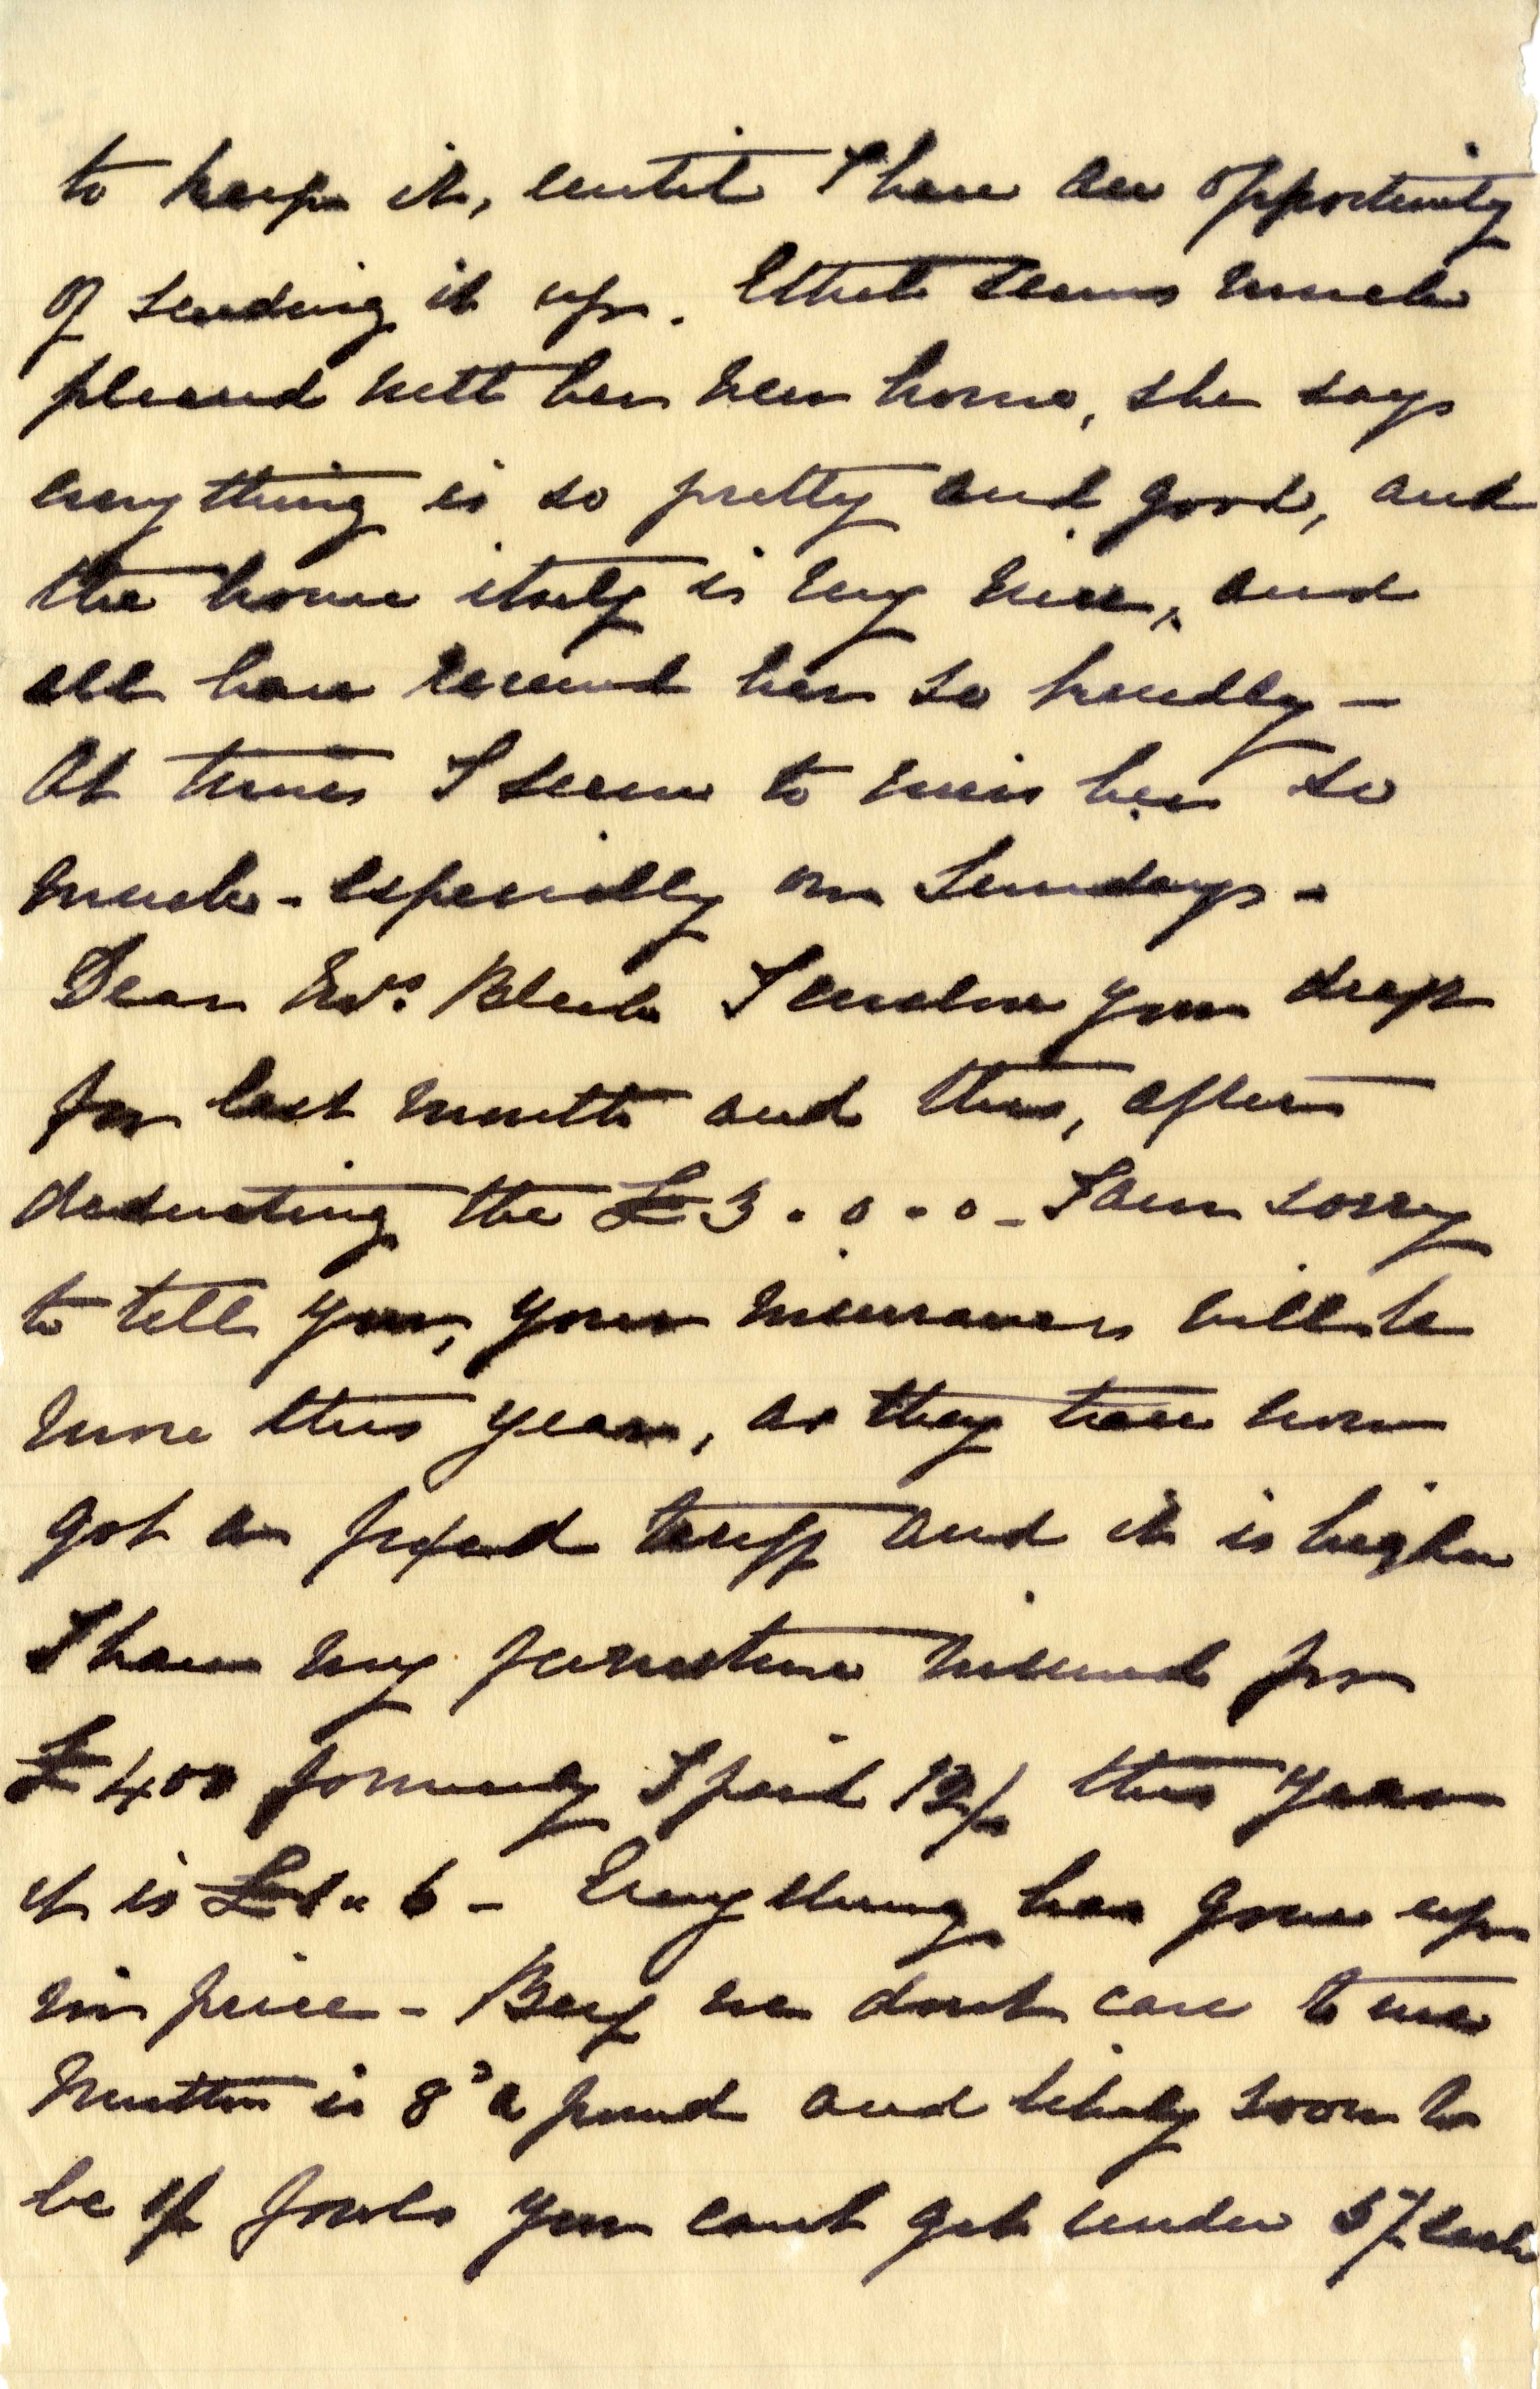 to keep it, until I have an opportunity
of sending it up. Ethel seems much
pleased with her new home, she says
everything is so pretty and good, and
the house itself is very nice, and
all have received her so kindly —
At times I seem to miss her so
much - especially on Sundays -
Dear Mrs. Bleek I enclose you draft
for last month and this, after
deducting the £3 . 0 . 0 - I am sorry
to tell you, your insurances will be
more this year, as they have now
got a fixed tariff and it is higher
I have my furniture insured for
£400 formerly I paid 12/6 this year
it is £1 " 6 - Everything has gone up
in price - Beef we dont care to use
Mutton is 8d a pound and likely soon to
be 1/ fowls you cant get under 5/ each